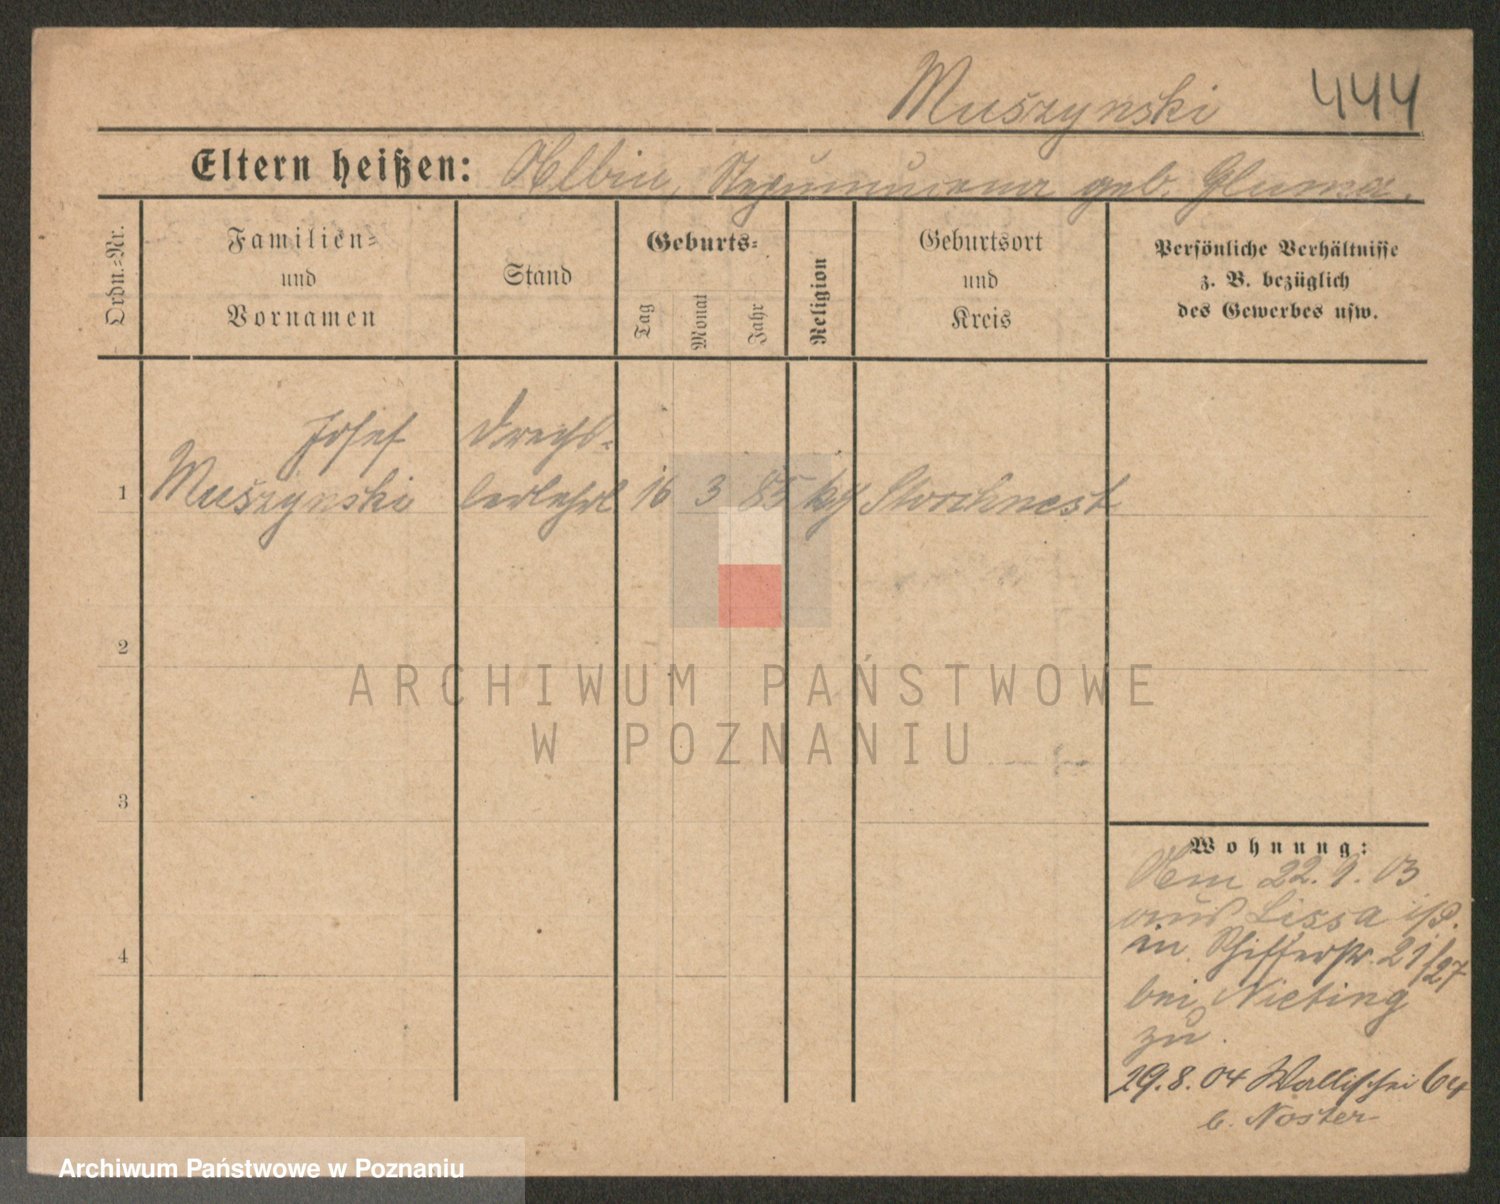 Muszynski 444
Eltern heißen: Albin, geb. Gluma.
Ordn.-Nr.
Familien-
und
Vornamen
Stand
Geburts-
Tag
Monat
Jahr
Religion
Geburtsort
und
Kreis
Persönliche Verhältnisse
z. B. bezüglich
des Gewerbes usw.
Josef Drechs-
1 Muszynski lerlehrl 16 3 85 kth Storchnest
2
3
4
Wohnung:
Am 22.9.03
aus Lissa i/P.
in Schifferstr. 21/27
bei Nieting
zu.
29.8.04 Wallischei 64
b. Noster
ARCHIWUM PAŃSTWOWE
W POZNANIU
Archiwum Państwowe w Poznaniu